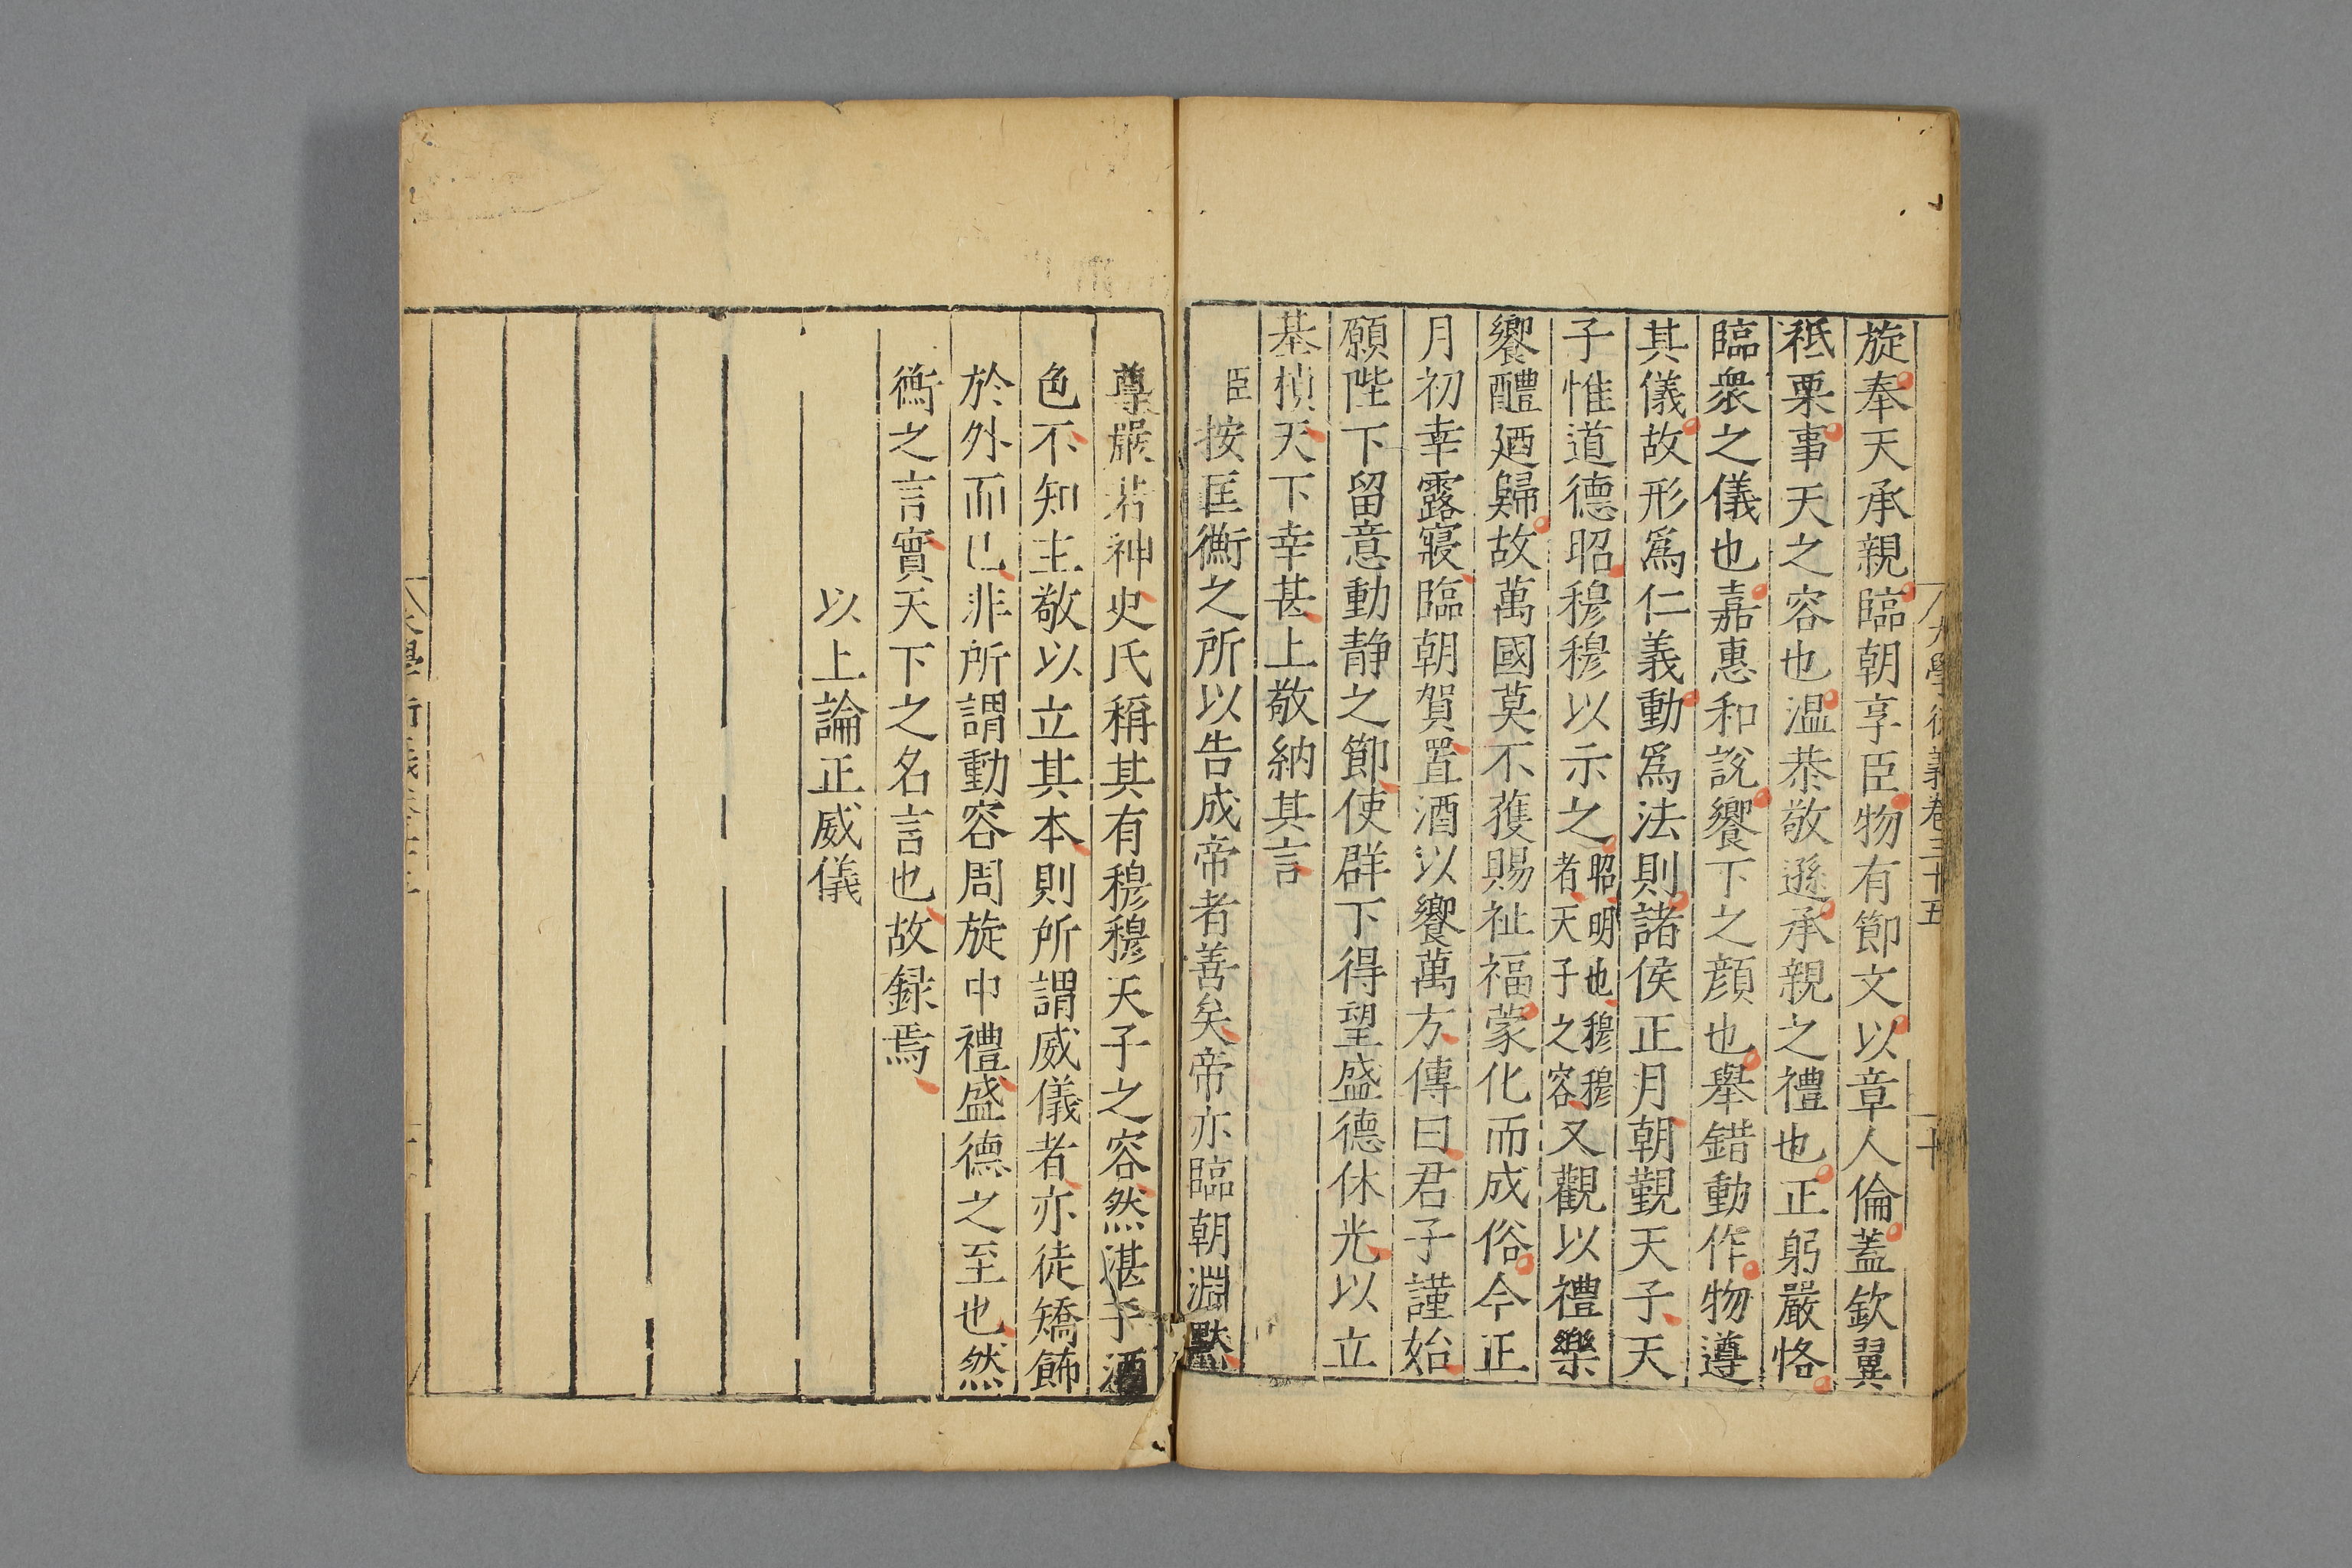 大學衍義卷三十五
十
旋奉天承親臨朝享臣物有節文以章人倫蓋欽翼
祗栗事天之容也温恭敬遜承親之禮也正躬嚴恪
臨衆之儀也嘉惠和說饗下之顔也舉錯動作物遵
其儀故形爲仁義動爲法則諸侯正月朝覲天子天
子惟道德昭穆穆以示之昭明也穆穆者天子之容又觀以禮樂
饗醴廼歸故萬國莫不獲賜祉福蒙化而成俗今正
月初幸露寢臨朝賀置酒以饗萬方傳曰君子謹始
願陛下留意動静之節使群下得望盛德休光以立
基楨天下幸甚上敬納其言
臣按匡衡之所以告成帝者善矣帝亦臨朝淵默
尊嚴若神史氏稱其有穆穆天子之容然湛于酒
色不知主敬以立其本則所謂威儀者亦徒矯飾
於外而已非所謂動容周旋中禮盛德之至也然
衡之言實天下之名言也故録焉
以上論正威儀